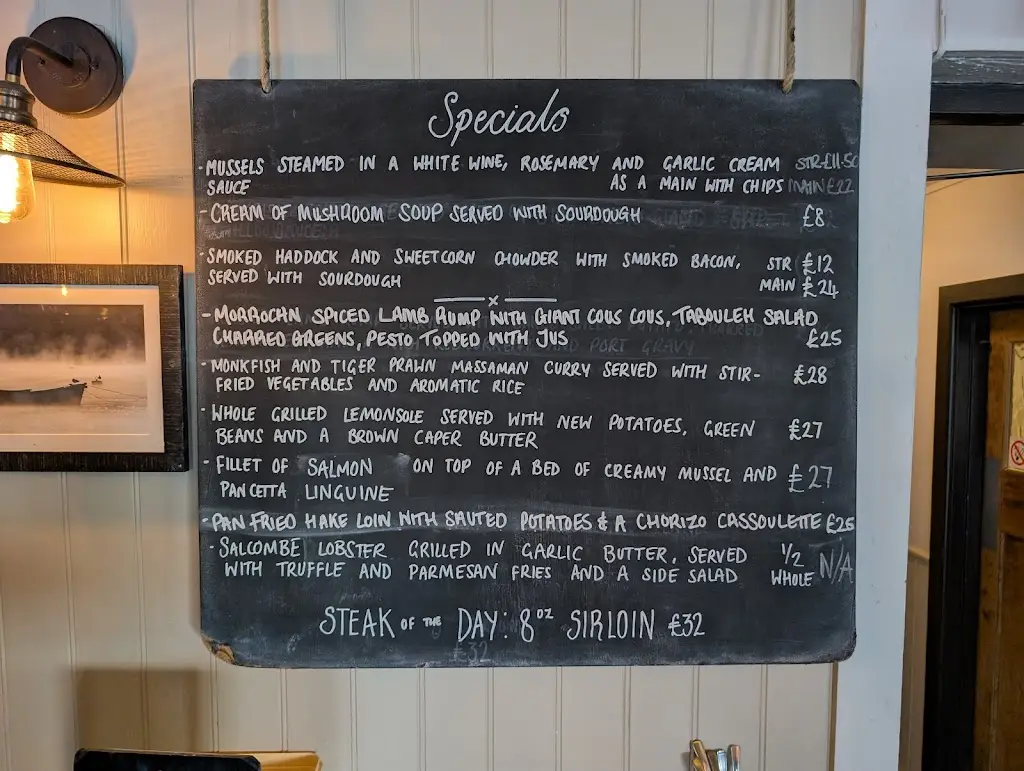 Specials
- MUSSELS STEAMED IN A WHITE WINE, ROSEMARY AND GARLIC CREAM STR £11.50
SAUCE AS A MAIN WITH CHIPS MAIN £22
- CREAM OF MUSHROOM SOUP SERVED WITH SOURDOUGH £8
- SMOKED HADDOCK AND SWEETCORN CHOWDER WITH SMOKED BACON, STR £12
SERVED WITH SOURDOUGH MAIN £24
x
- MORROCAN SPICED LAMB RUMP WITH GIANT COUS COUS, TABOULEH SALAD
CHARRED GREENS, PESTO TOPPED WITH JUS £25
- MONKFISH AND TIGER PRAWN MASSAMAN CURRY SERVED WITH STIR- £28
FRIED VEGETABLES AND AROMATIC RICE
- WHOLE GRILLED LEMONSOLE SERVED WITH NEW POTATOES, GREEN £27
BEANS AND A BROWN CAPER BUTTER
- FILLET OF SALMON ON TOP OF A BED OF CREAMY MUSSEL AND £27
PANCETTA LINGUINE
- PAN FRIED HAKE LOIN WITH SAUTED POTATOES & A CHORIZO CASSOULETTE £25
- SALCOMBE LOBSTER GRILLED IN GARLIC BUTTER, SERVED 1/2 N/A
WITH TRUFFLE AND PARMESAN FRIES AND A SIDE SALAD WHOLE
STEAK OF THE DAY: 8oz SIRLOIN £32
£32